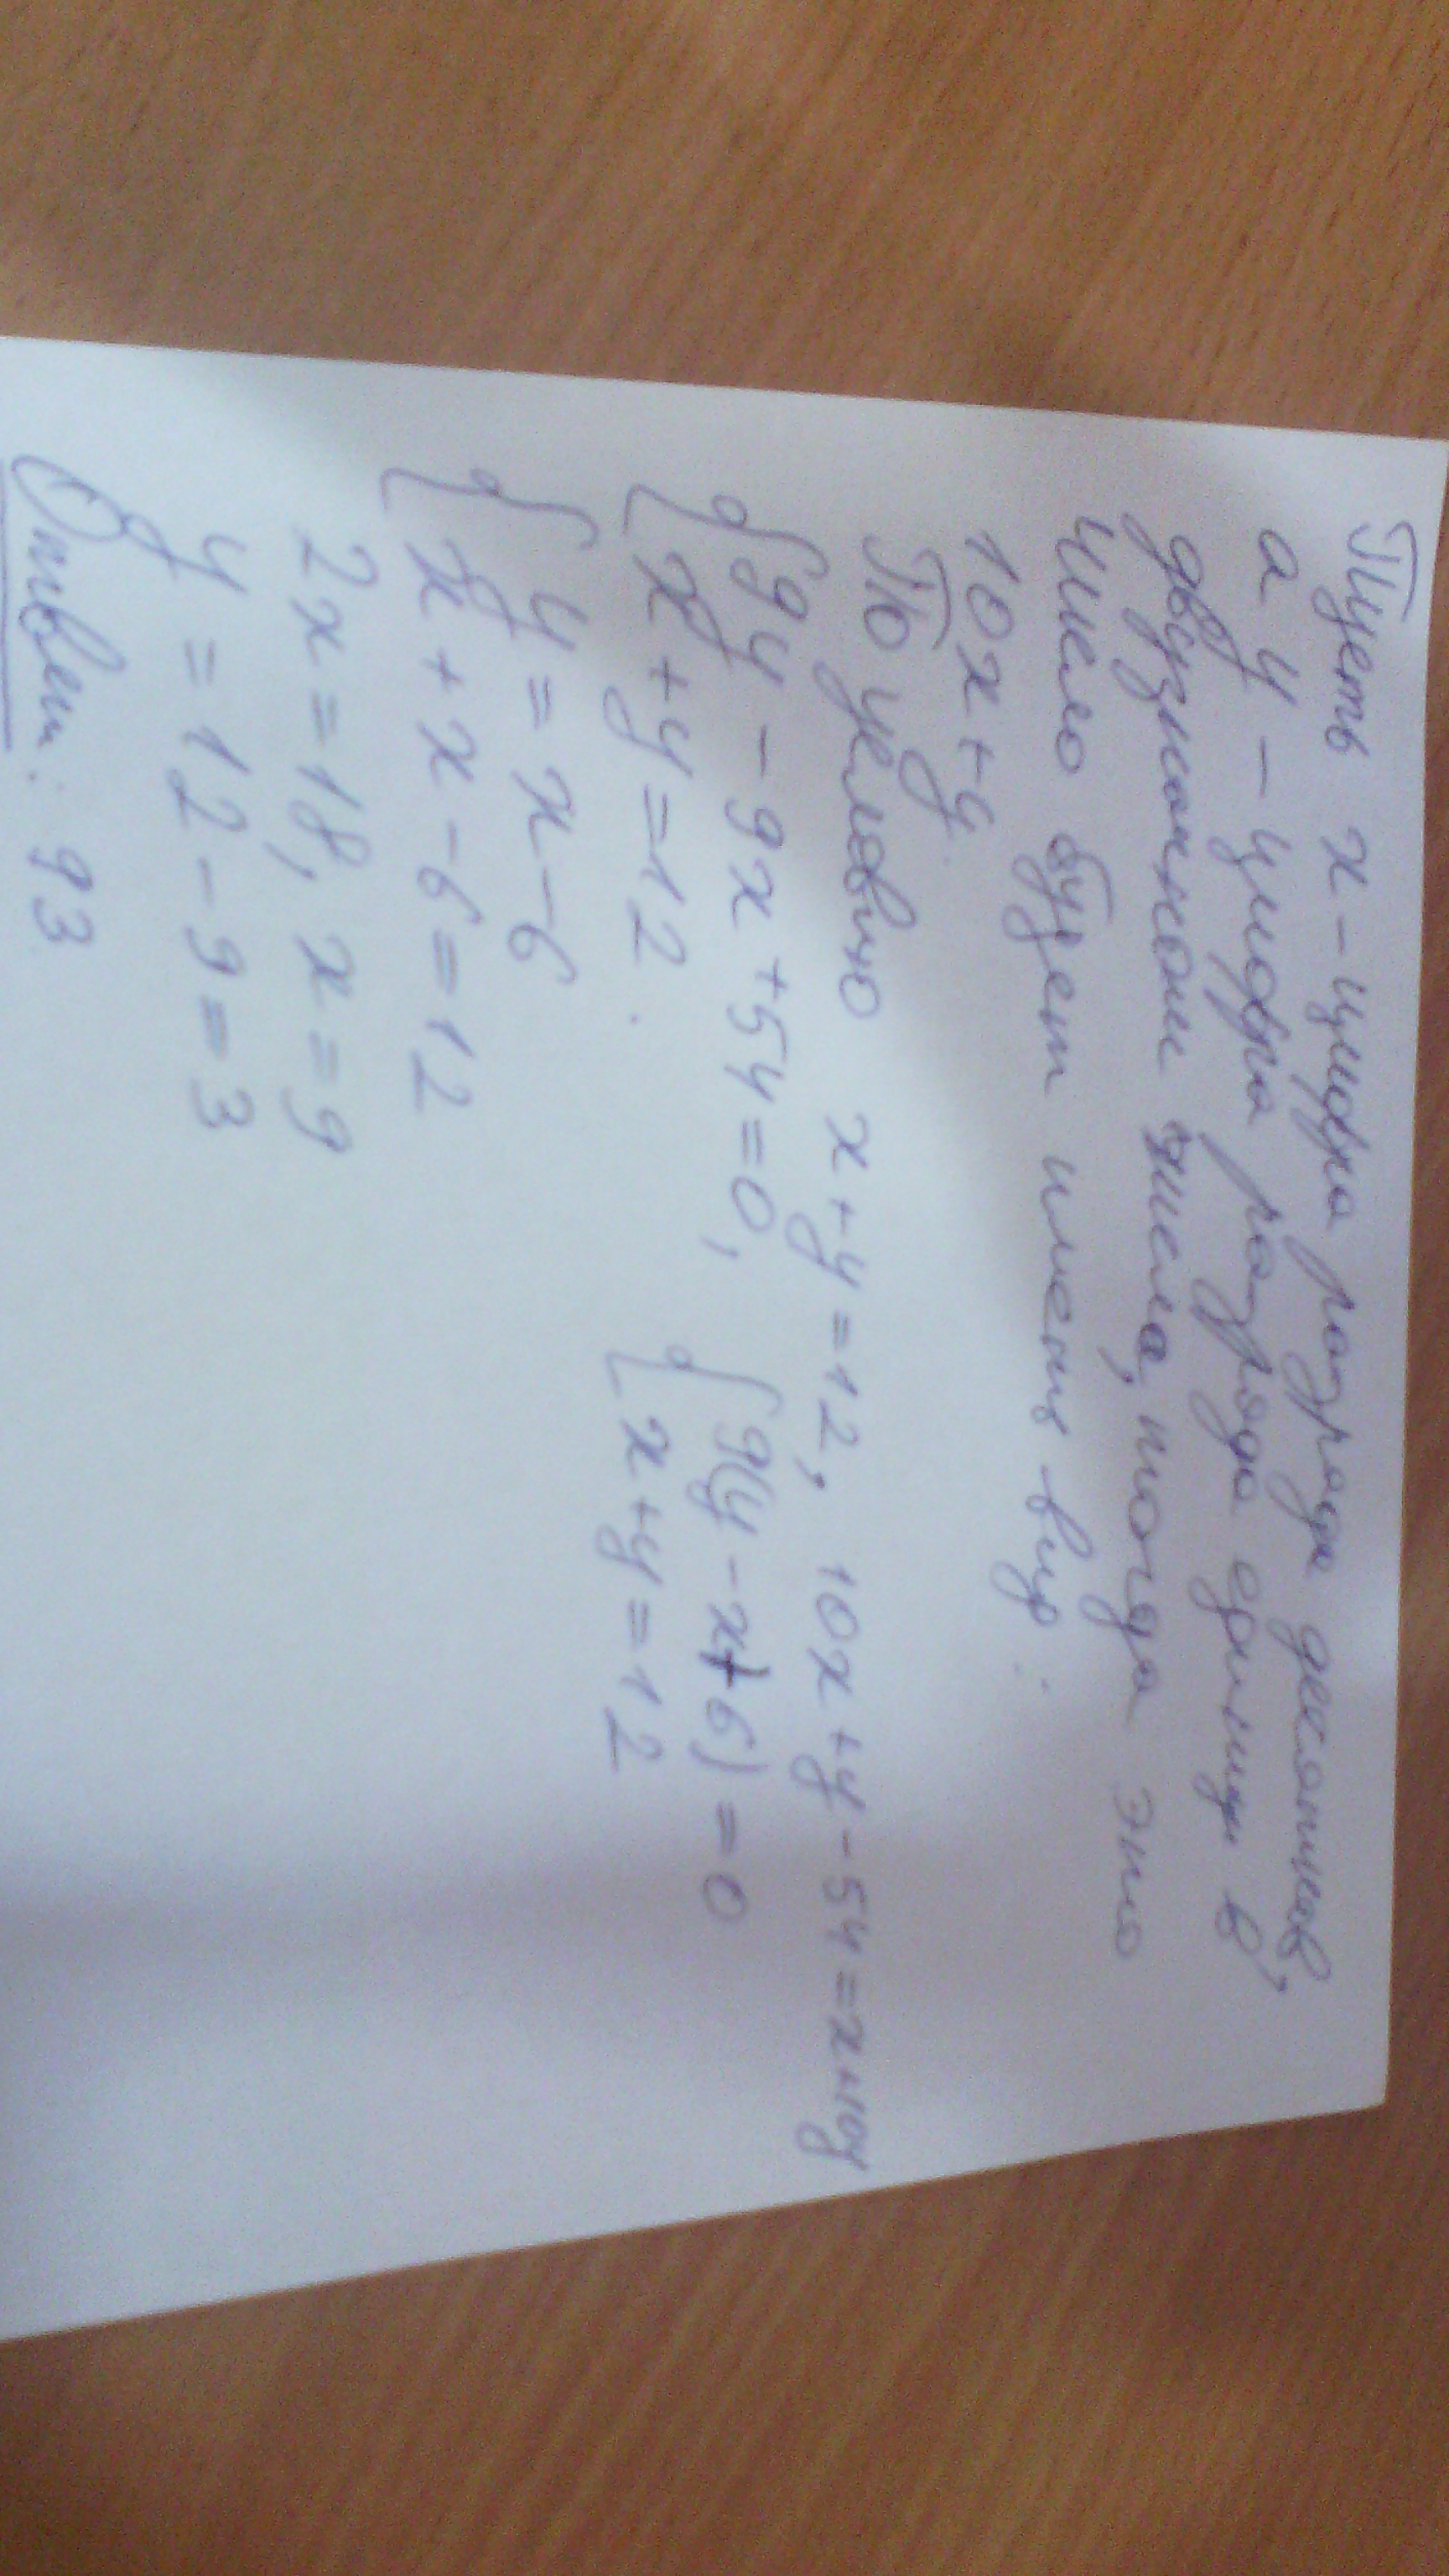 Пусть x – цифра разряда десятков,
а y – цифра разряда единиц в
двузначном числа, тогда это
число будет иметь вид:
10x+y.
По условию x+y=12, 10x+y-54=x+10y
{9y-9x+54=0, {9(y-x+6)=0
x+y=12. x+y=12
{y=x-6
x+x-6=12
2x=18, x=9
y=12-9=3
Ответ: 93